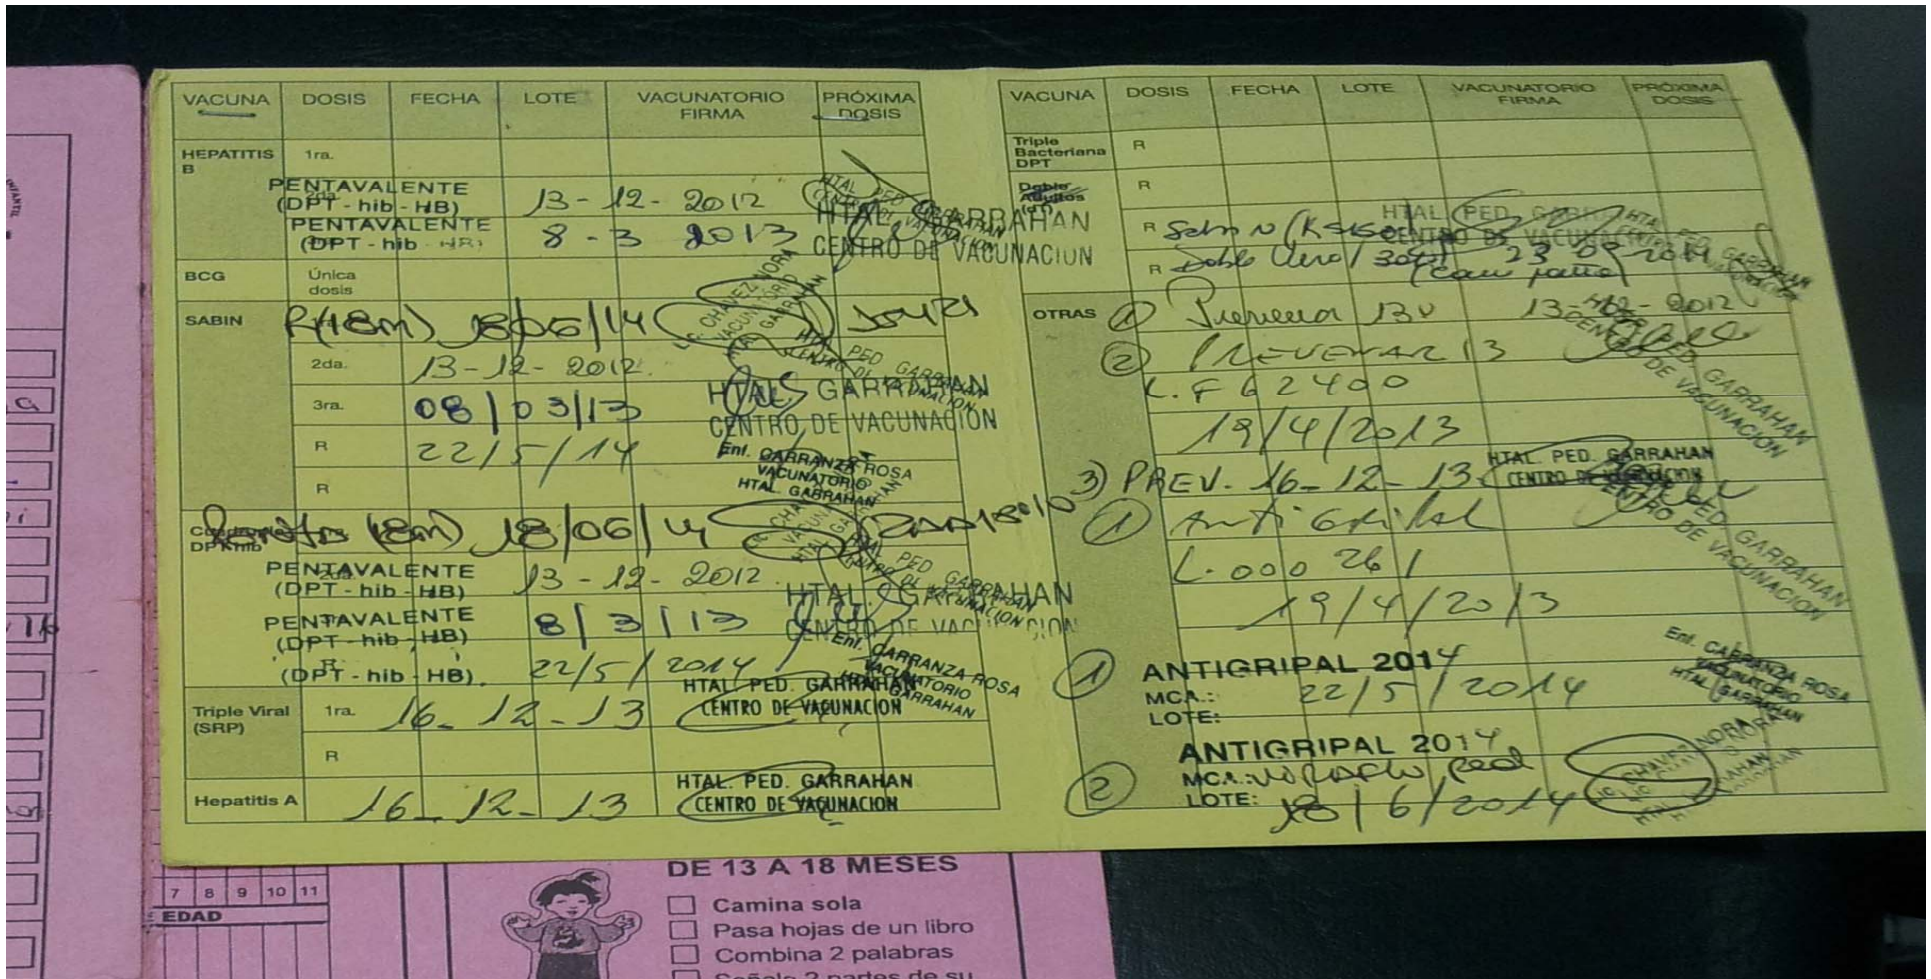 VACUNA DOSIS FECHA LOTE VACUNATORIO FIRMA PRÓXIMA DOSIS
HEPATITIS B 1ra.
PENTAVALENTE
2da.
(DPT - hib - HB) 13-12-2012 HTAL PED GARRAHAN CENTRO DE VACUNACION
PENTAVALENTE
(DPT - hib - HB) 8-3 2013 HTAL. GARRAHAN CENTRO DE VACUNACION
BCG Única dosis
SABIN R(18m) 18/06/14 LIC. CHAVEZ NORA VACUNATORIO HTAL GARRAHAN
2da. 13-12-2012 HTAL PED GARRAHAN CENTRO DE VACUNACION
3ra. 08/03/13 HTAL. GARRAHAN CENTRO DE VACUNACION
R 22/5/14 Enf. CARRANZA ROSA VACUNATORIO HTAL. GARRAHAN
R
DPT hib (18m) 18/06/14
PENTAVALENTE
2da.
(DPT - hib - HB) 13-12-2012 HTAL PED GARRAHAN CENTRO DE VACUNACION
PENTAVALENTE
(DPT - hib - HB) 8/3/13 HTAL. GARRAHAN CENTRO DE VACUNACION
R
(DPT - hib - HB) 22/5/2014 Enf. CARRANZA ROSA VACUNATORIO HTAL. GARRAHAN
Triple Viral (SRP) 1ra. 16-12-13 HTAL. PED. GARRAHAN CENTRO DE VACUNACION
R
Hepatitis A 16-12-13 HTAL. PED. GARRAHAN CENTRO DE VACUNACION
VACUNA DOSIS FECHA LOTE VACUNATORIO FIRMA PRÓXIMA DOSIS
Triple Bacteriana DPT R
Doble Adultos (dT) R
R Sabin HTAL. PED. GARRAHAN CENTRO DE VACUNACION
R Doble
OTRAS 1 13-12-2012
2 PREVENAR 13
L. F62400
19/4/2013
3) PREV. 16-12-13 HTAL. PED. GARRAHAN CENTRO DE VACUNACION
1 Antigripal
L. 000261
19/4/2013
1 ANTIGRIPAL 2014
MCA.: 22/5/2014 Enf. CARRANZA ROSA VACUNATORIO HTAL. GARRAHAN
LOTE:
ANTIGRIPAL 2014
2 MCA.:
LOTE: 18/6/2014
7 8 9 10 11
EDAD
DE 13 A 18 MESES
Camina sola
Pasa hojas de un libro
Combina 2 palabras
Señala 2 partes de su